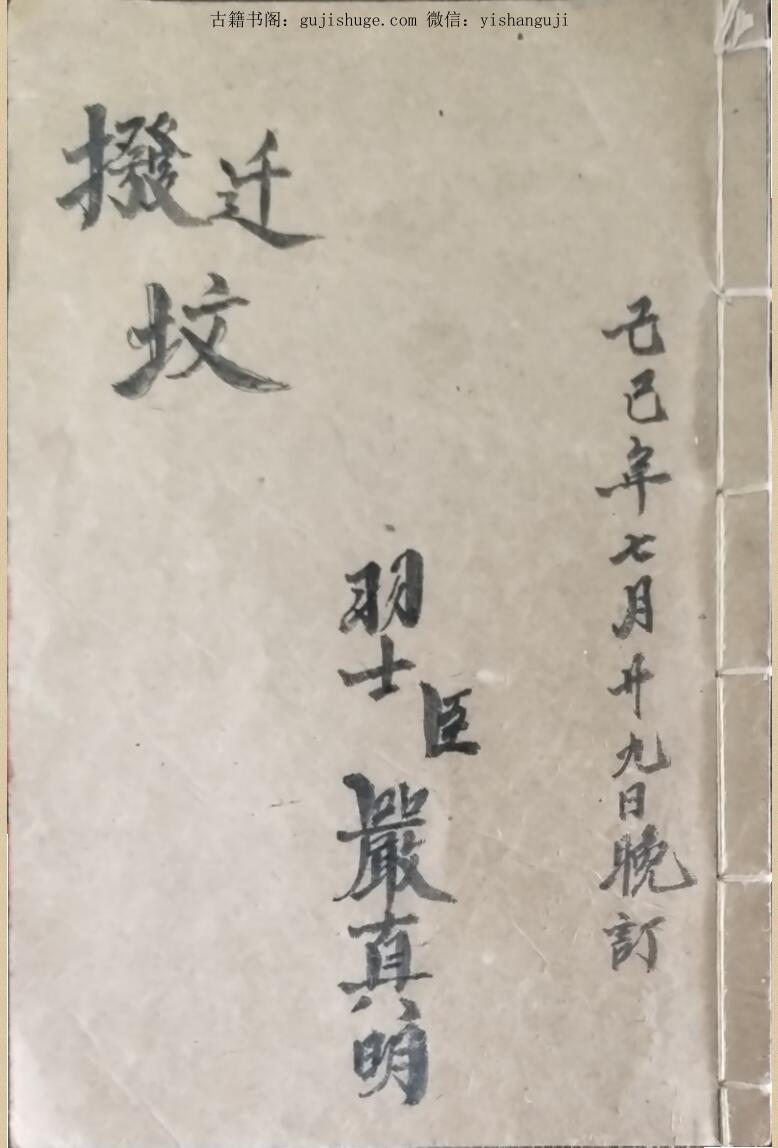 古籍书阁：gujishuge.com 微信：yishanguji
己巳年七月廿九日晚訂
迁撥
坟
羽士
臣
嚴真明